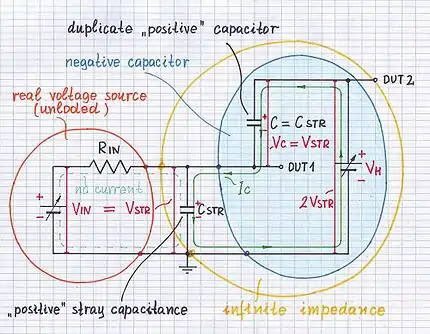 duplicate „positive" capacitor
negative capacitor
DUT2
real voltage source
(unloded)
C = CSTR
VC = VSTR
RIN
DUT1
+
-
VH
no current
IC
VIN = VSTR
CSTR
2VSTR
+
-
„positive" stray capacitance
infinite impedance